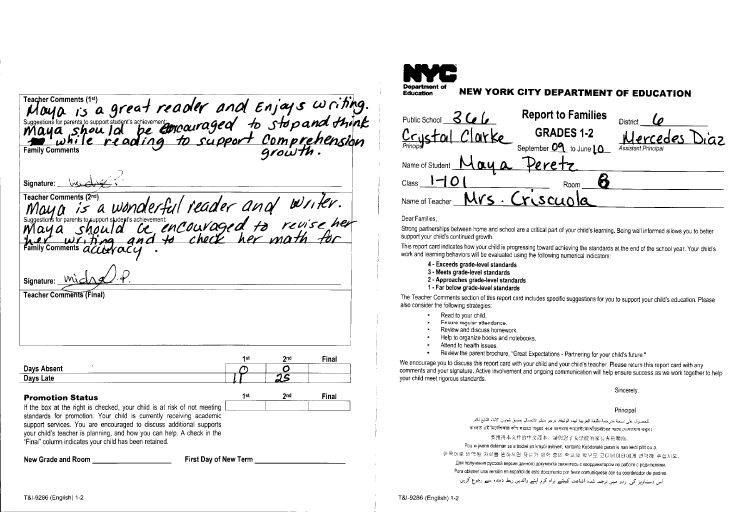 Teacher Comments (1st)
Maya is a great reader and Enjoys writing.
Suggestions for parents to support student's achievement:
Maya should be encouraged to stop and think
while reading to support comprehension
growth.
Family Comments
Signature:
Teacher Comments (2nd)
Maya is a wonderful reader and writer.
Suggestions for parents to support student's achievement:
Maya should be encouraged to revise her
her writing and to check her math for
accuracy.
Family Comments
Signature: P.
Teacher Comments (Final)
1st 2nd Final
Days Absent 0
Days Late 25
Promotion Status 1st 2nd Final
If the box at the right is checked, your child is at risk of not meeting
standards for promotion. Your child is currently receiving academic
support services. You are encouraged to discuss additional supports
your child's teacher is planning, and how you can help. A check in the
"Final" column indicates your child has been retained.
New Grade and Room First Day of New Term
T&I-9286 (English) 1-2
NYC
Department of
Education
NEW YORK CITY DEPARTMENT OF EDUCATION
Public School 366 Report to Families District 6
Crystal Clarke GRADES 1-2 Mercedes Diaz
Principal September 09 to June 10 Assistant Principal
Name of Student Maya Peretz
Class 1-101 Room 8
Name of Teacher Mrs. Criscuola
Dear Families,
Strong partnerships between home and school are a critical part of your child's learning. Being well informed allows you to better
support your child's continued growth.
This report card indicates how your child is progressing toward achieving the standards at the end of the school year. Your child's
work and learning behaviors will be evaluated using the following numerical indicators:
4 - Exceeds grade-level standards
3 - Meets grade-level standards
2 - Approaches grade-level standards
1 - Far below grade-level standards
The Teacher Comments section of this report card includes specific suggestions for you to support your child's education. Please
also consider the following strategies:
• Read to your child.
• Ensure regular attendance.
• Review and discuss homework.
• Help to organize books and notebooks.
• Attend to health issues.
• Review the parent brochure, "Great Expectations - Partnering for your child's future."
We encourage you to discuss this report card with your child and your child's teacher. Please return this report card with any
comments and your signature. Active involvement and ongoing communication will help ensure success as we work together to help
your child meet rigorous standards.
Sincerely,
Principal
Para obtener una versión en español de este documento por favor comuníquese con su coordinador de padres.
T&I-9286 (English) 1-2